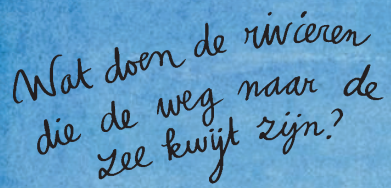 Wat doen de rivieren
die de weg naar de
zee kwijt zijn?